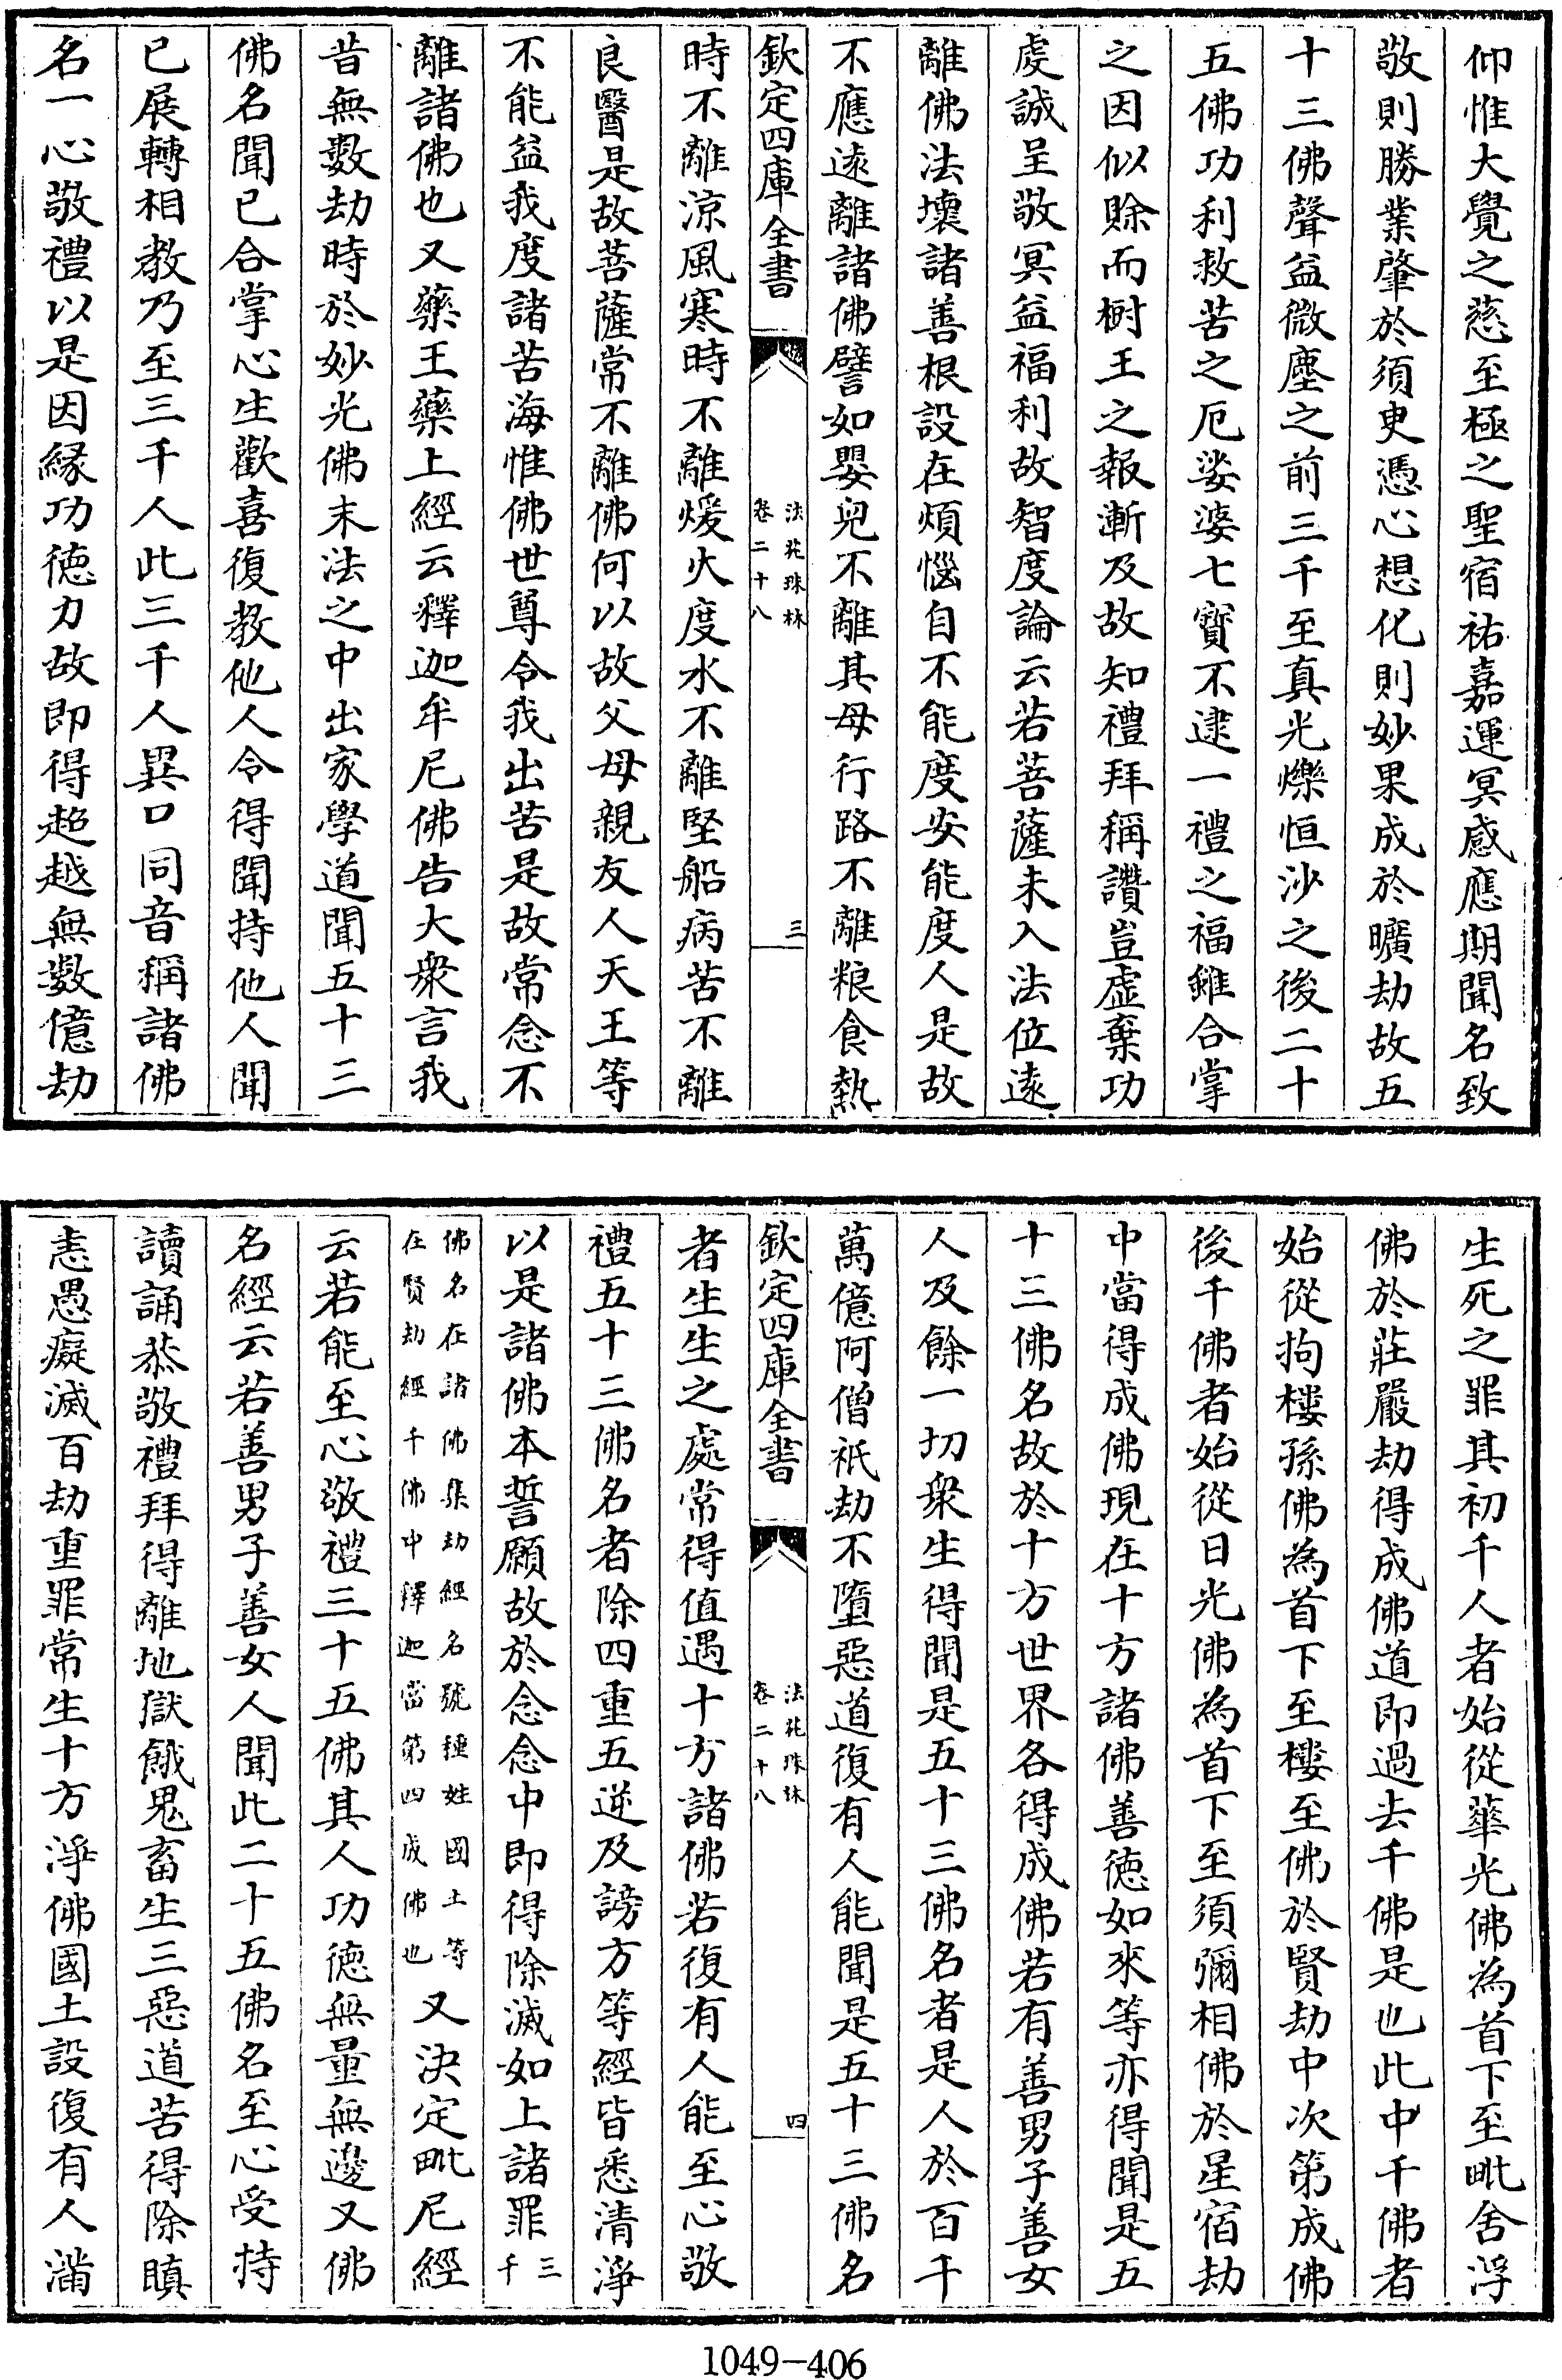 仰惟大覺之慈至極之聖宿祐嘉運冥感應期聞名致
敬則勝業肇於須㬰憑心想化則妙果成於曠劫故五
十三佛聲益微塵之前三千至真光爍恒沙之後二十
五佛功利救苦之厄娑婆七寶不逮一禮之福雖合掌
之因似賒而樹王之報漸及故知禮拜稱讚豈虛棄功
虔誠呈敬冥益福利故智度論云若菩薩未入法位遠
離佛法壞諸善根設在煩惱自不能度安能度人是故
不應遠離諸佛譬如嬰兒不離其母行路不離粮食熱
欽定四庫全書
法苑珠林
卷二十八
三
時不離涼風寒時不離煖火度水不離堅船病苦不離
良醫是故菩薩常不離佛何以故父母親友人天王等
不能益我度諸苦海惟佛世尊令我出苦是故常念不
離諸佛也又藥王藥上經云釋迦牟尼佛告大衆言我
昔無數劫時於妙光佛末法之中出家學道聞五十三
佛名聞已合掌心生歡喜復教他人令得聞持他人聞
已展轉相教乃至三千人此三千人異口同音稱諸佛
名一心敬禮以是因緣功德力故即得超越無數億劫
生死之罪其初千人者始從華光佛為首下至毗舍浮
佛於莊嚴劫得成佛道即過去千佛是也此中千佛者
始從拘樓孫佛為首下至樓至佛於賢劫中次第成佛
後千佛者始從日光佛為首下至須彌相佛於星宿劫
中當得成佛現在十方諸佛善德如來等亦得聞是五
十三佛名故於十方世界各得成佛若有善男子善女
人及餘一切衆生得聞是五十三佛名者是人於百千
萬億阿僧祇劫不墮惡道復有人能聞是五十三佛名
欽定四庫全書
法苑珠林
卷二十八
四
者生生之處常得值遇十方諸佛若復有人能至心敬
禮五十三佛名者除四重五逆及謗方等經皆悉清淨
以是諸佛本誓願故於念念中即得除滅如上諸罪三千
佛名在諸佛集劫經名號種姓國土等在賢劫經千佛中釋迦當第四成佛也又決定毗尼經
云若能至心敬禮三十五佛其人功德無量無邊又佛
名經云若善男子善女人聞此二十五佛名至心受持
讀誦恭敬禮拜得離地獄餓鬼畜生三惡道苦得除瞋
恚愚癡滅百劫重罪常生十方淨佛國土設復有人滿
1049-406